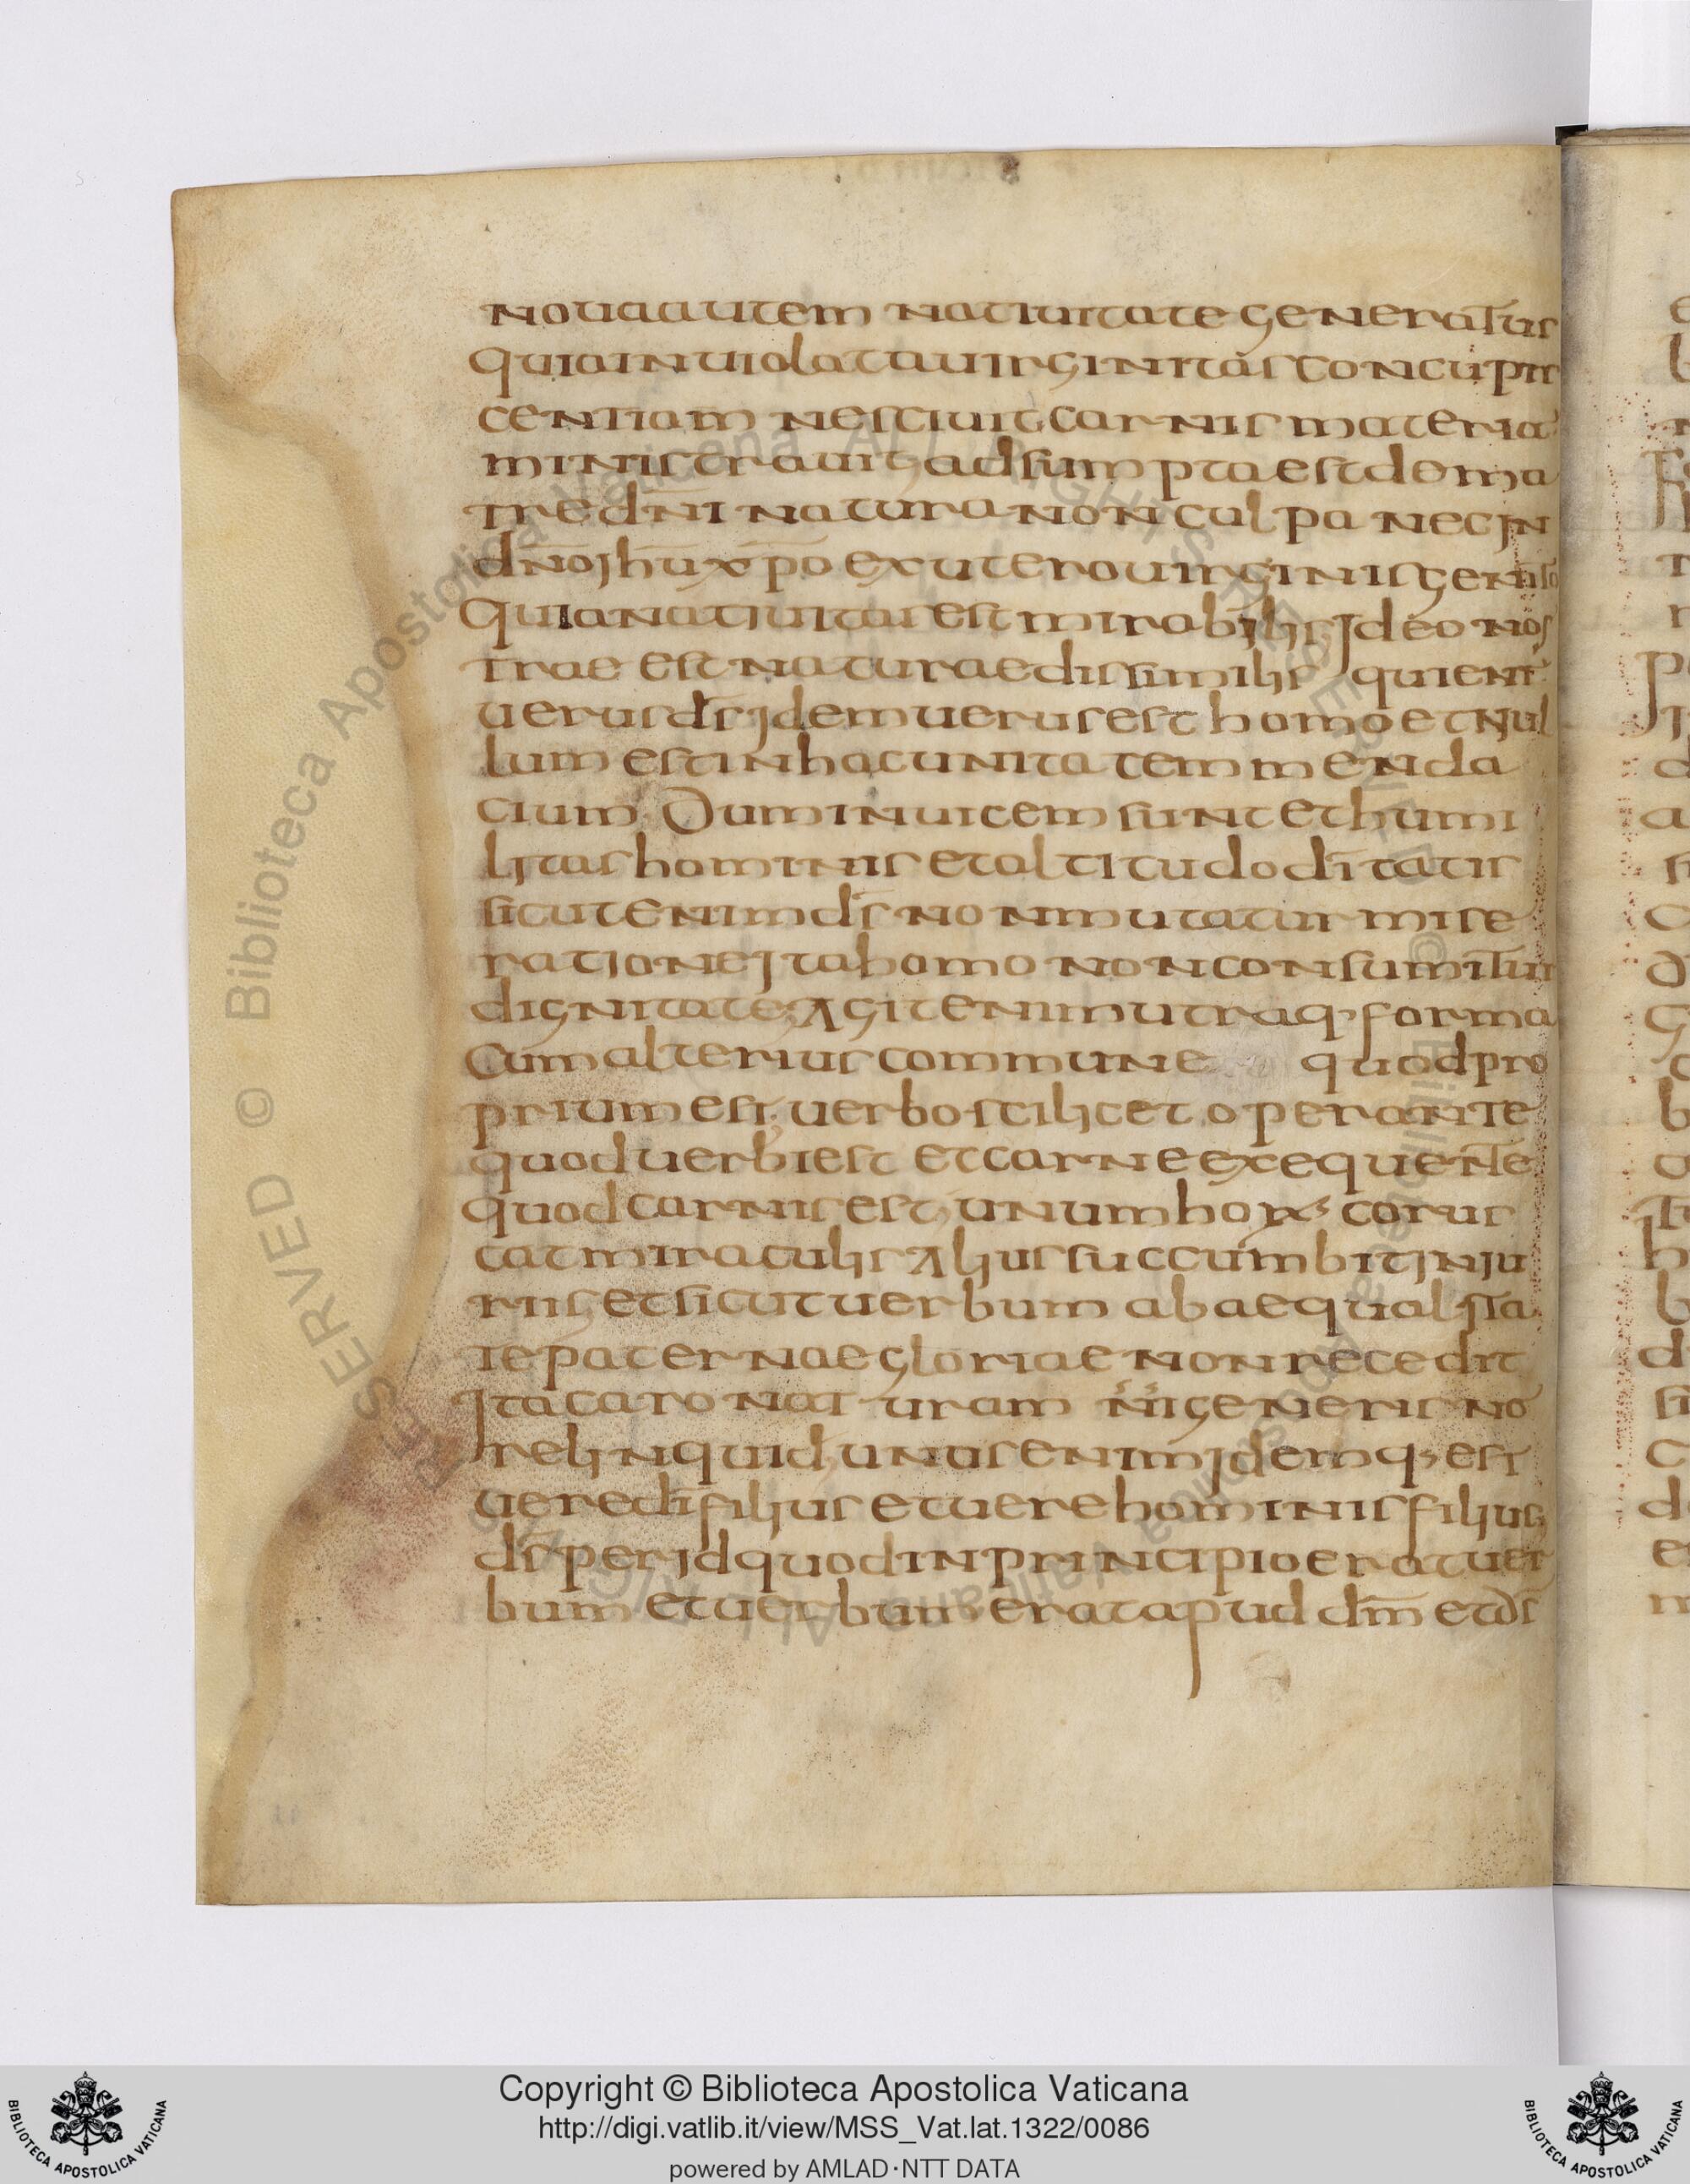 nouaautem natiuitate generatus
quiainuiolatauirginitasconcupis
centiam nesciuit carnis materiā
ministrauit adsumptaestdema
tredn̄i naturanonculpa necin
dn̄oih̄ux̄p̄o exuterouirginisgenito
Quianatiuitasest mirabilis Ideo nos
trae estnaturaedissimilis quienī
uerusdsīdemuerusest homoetnul
lum estinhacunitatemmenda
cium Duminuicem suntethumi
litashominis etaltitudodītatis
sicutenimds̄ nonmutatur mise
rationeitahomo nonconsumitur
dignitate Agitenimutraq· forma
Cumalteriuscommune quodpro
priumest uerboscilicet operante
quoduerbiest etcarneexequente
quodcarnisest unumhorx· corus
catmiraculis Aliussuccumbitiniu
riis etsicutuerbum abaequalita
tepaternaegloriae nonrecedit
Itacaronat uram n̄īgeneris nō
relinquid unusenimidemq· est
ueredīfilius etuerehominisfilius
ds̄peridquodinprincipioeratuer
bum etuerbum eratapud dm̄ etds̄
RESERVED © Biblioteca Apostolica Vaticana ALL RIGHTS RESERVED © Biblioteca Apostolica Vaticana ALL RIGHTS
Copyright © Biblioteca Apostolica Vaticana
http://digi.vatlib.it/view/MSS_Vat.lat.1322/0086
powered by AMLAD·NTT DATA
BIBLIOTECA APOSTOLICA VATICANA
BIBLIOTECA APOSTOLICA VATICANA